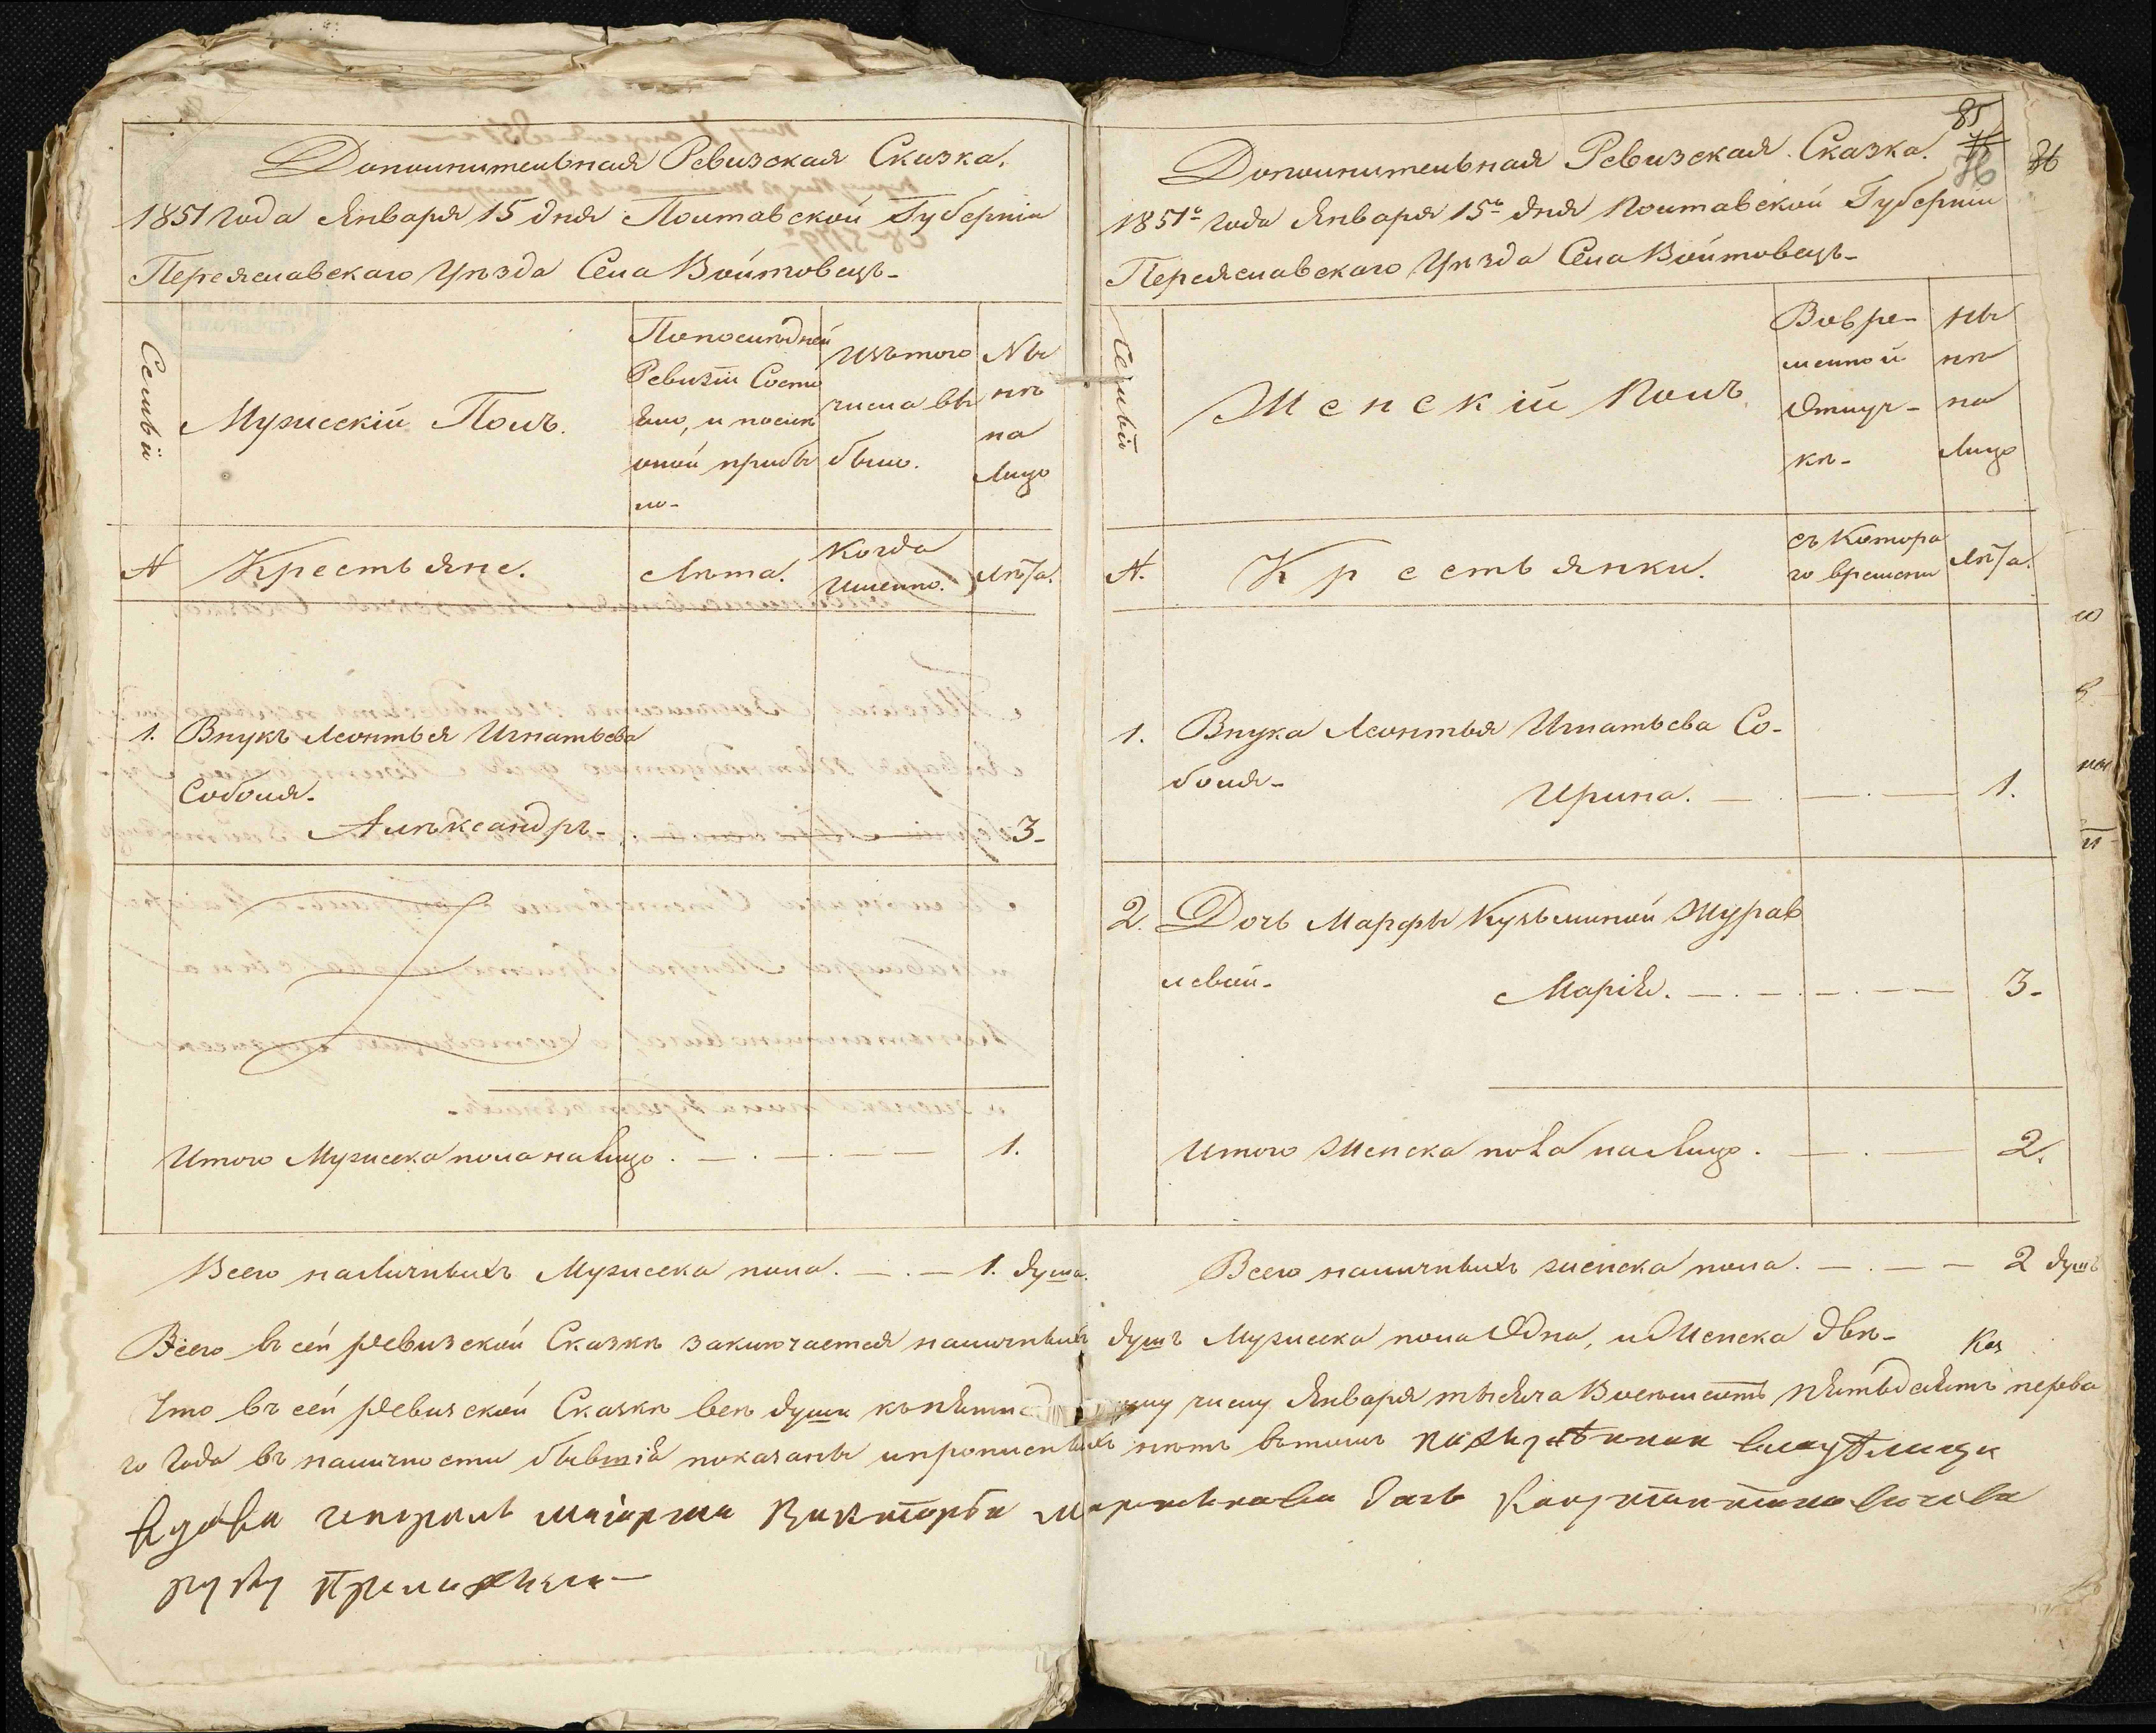 Дополнительная Ревизская Сказка.
1851 года Января 15 дня Полтавской Губерніи
Переяславскаго Уѣзда Села Войтовецъ-
Семьи
Мужескій Полъ.
По последней
Ревизіи Состо
яло, и послѣ
оной прибы
ло-
Изъ того
числа вы
было.
Ны
нѣ
на
Лицо
№ Крестьяне.
Лѣта.
Когда
Именно.
Лѣта.
1. Внукъ Леонтья Игнатьева
Соболя.
Алѣксандръ- 3-
Итого Мужеска пола на лицо. 1.
Всего наличныхъ Мужеска пола. 1. душа.
85
76
76
Дополнительная Ревизская Сказка.
1851го года Января 15го дня Полтавской Губерніи
Переяславскаго Уѣзда Села Войтовецъ-
Семьи
Женскій Полъ
Во вре-
менной
Отлуч-
кѣ-
Ны
нѣ
на
Лицо
№. Крестьянки.
съ Котора
го времени
Лѣта.
1. Внука Леонтья Игнатьева Со-
боля-
Ирина. 1.
2. Дочь Марфы Кузьминой Журав
левой-
Марія. 3-
Итого Женска пола на лицо. 2.
Всего наличныхъ женска пола. 2 душъ
Всего въ сей ревизской Сказкѣ заключается наличныхъ душъ Мужеска пола Одна, и Женска двѣ-
Что въ сей ревизской Сказкѣ всѣ души къ числу Января тысяча Восемьсотъ пятьдесятъ перва
го года въ наличности бывшія показаны и прописныхъ нѣтъ въ томъ
вдова генералъ маіорша Викторія дочь
руку приложила